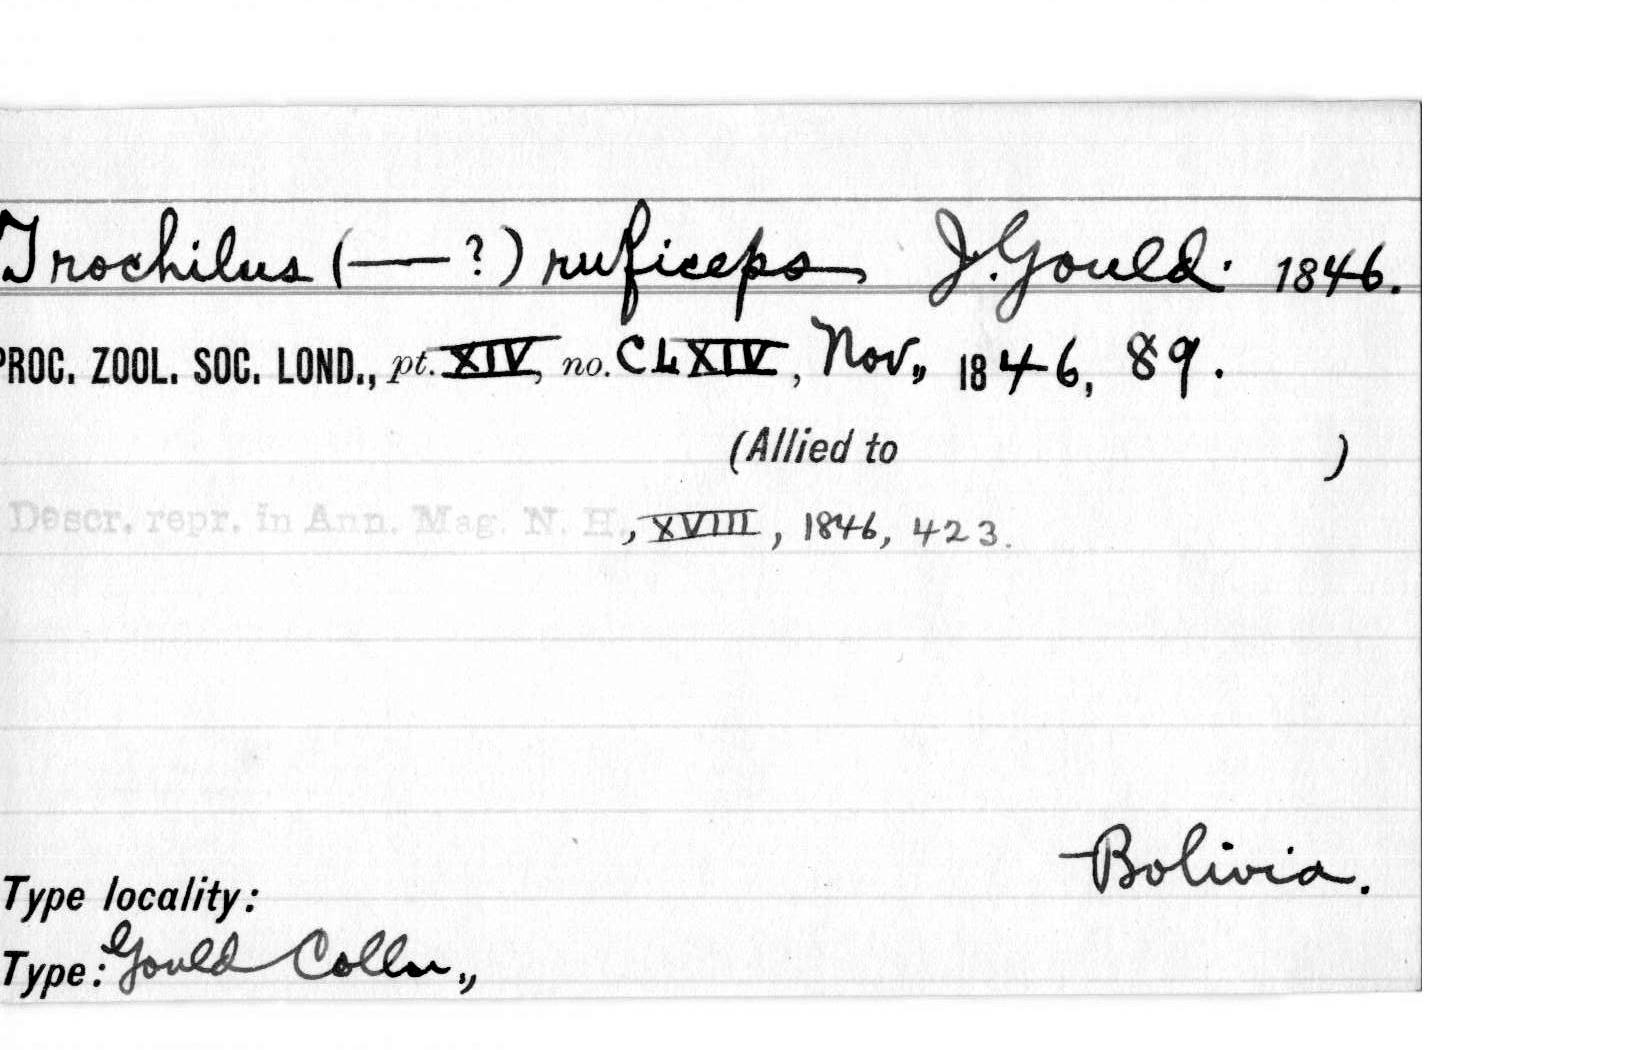 Trochilus (— ?) ruficeps, J. Gould. 1846.
PROC. ZOOL. SOC. LOND., pt. XIV, no. CLXIV, Nov., 1846, 89.
(Allied to )
Descr. repr. in Ann. Mag. N. H., XVIII, 1846, 423.
Bolivia.
Type locality:
Type: Gould Colln.,